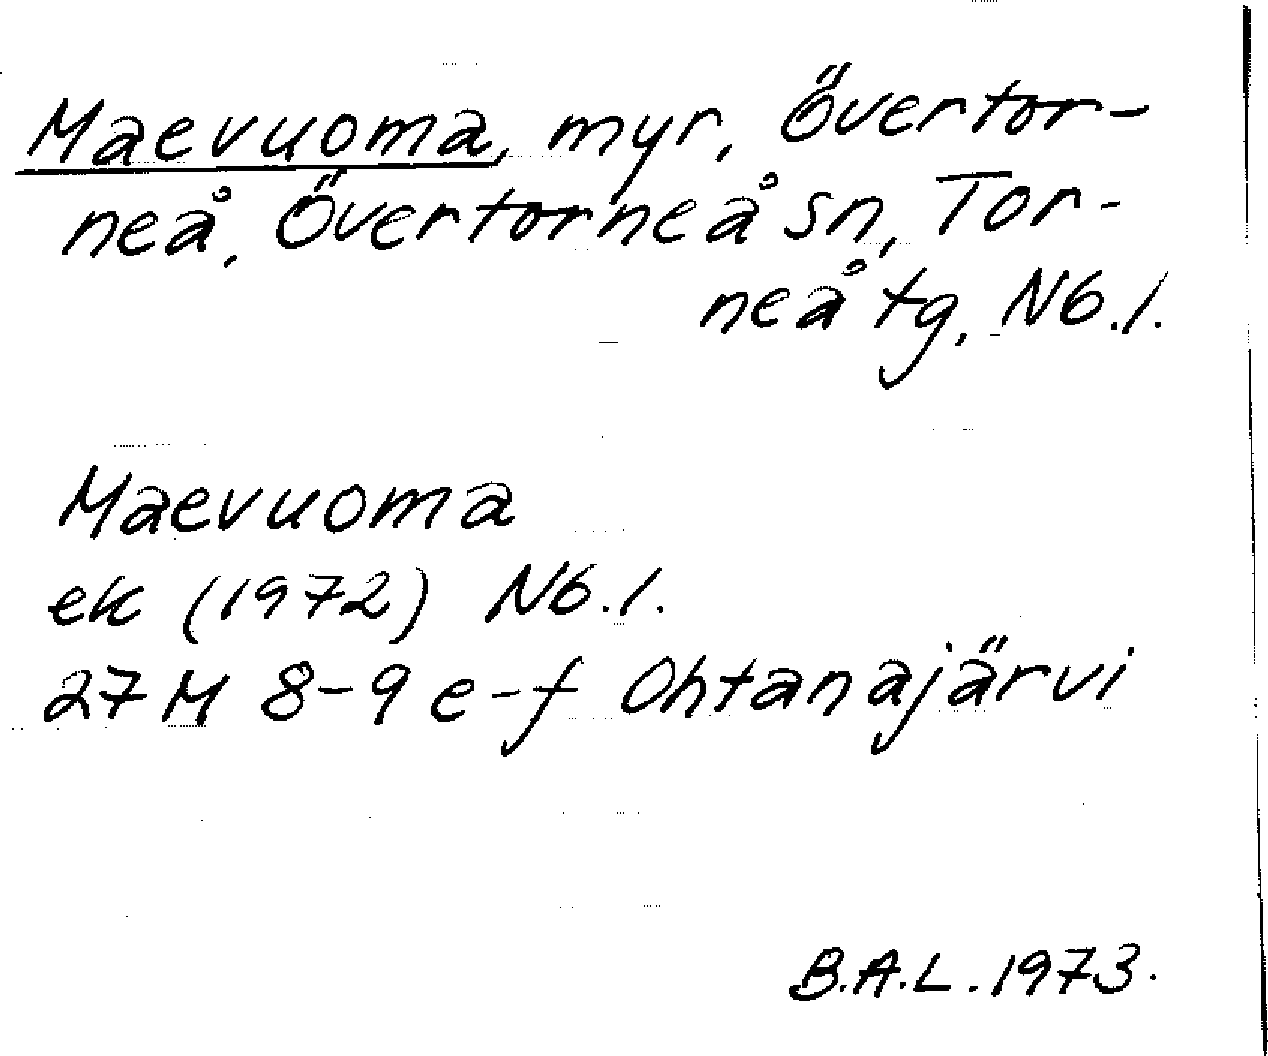 Maevuoma, myr, Övertor-
neå, Övertorneå sn, Tor-
neå tg, Nb.l.
Maevuoma
ek (1972) Nb.l.
27 M 8-9 e-f Ohtanajärvi
B.A.L. 1973.